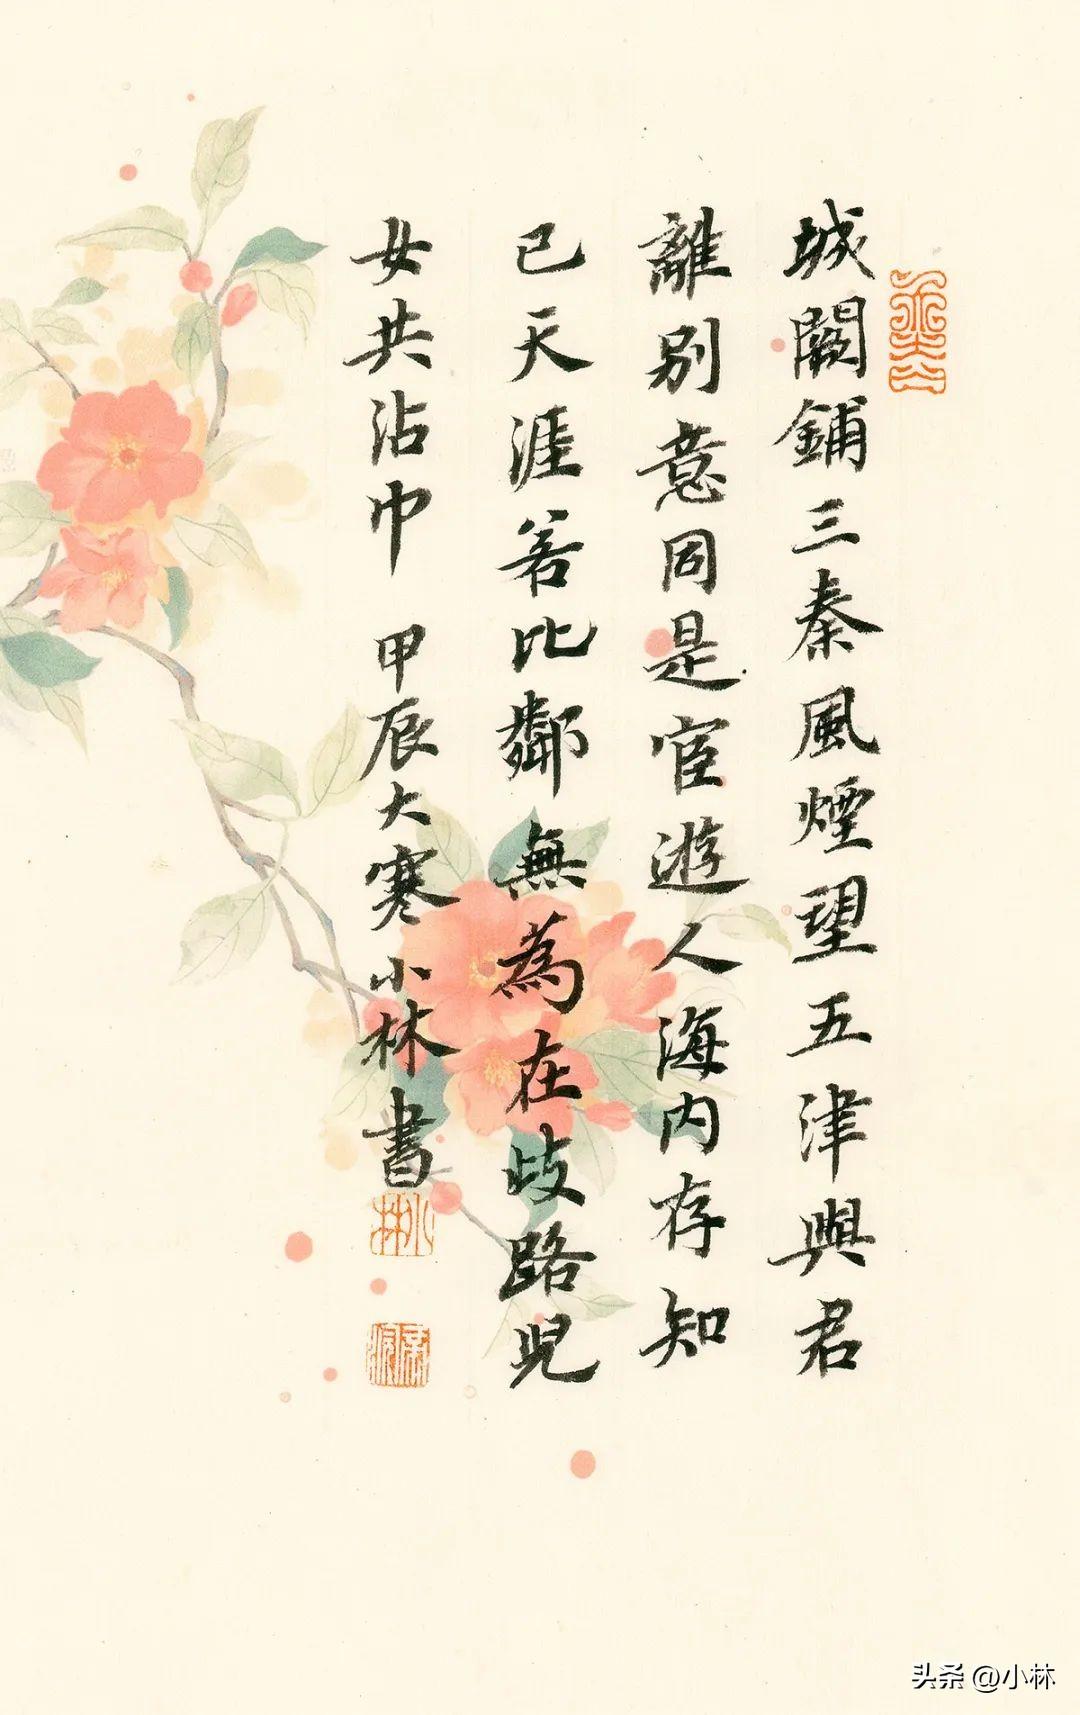 城闕鋪三秦風煙望五津與君
離別意同是宦遊人海内存知
已天涯若比鄰無為在歧路兒
女共沾巾 甲辰大寒小林書
小林
头条 @小林